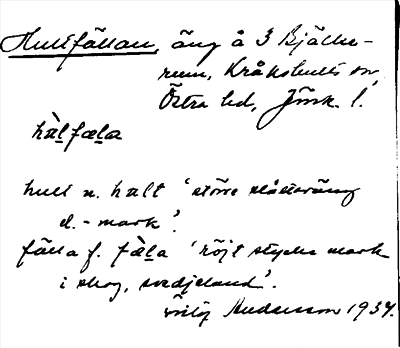 Hultfällan, äng å 3 Bjälke-
rum, Kråkshults sn,
Östra hd, Jönk. l.
hàl̲fæl̲a
hult n. halt 'större slåtteräng
el. -mark'.
fälla f. fæ̀l̲a 'röjt stycke mark
i skog, svedjeland'.
Andersson 1934.